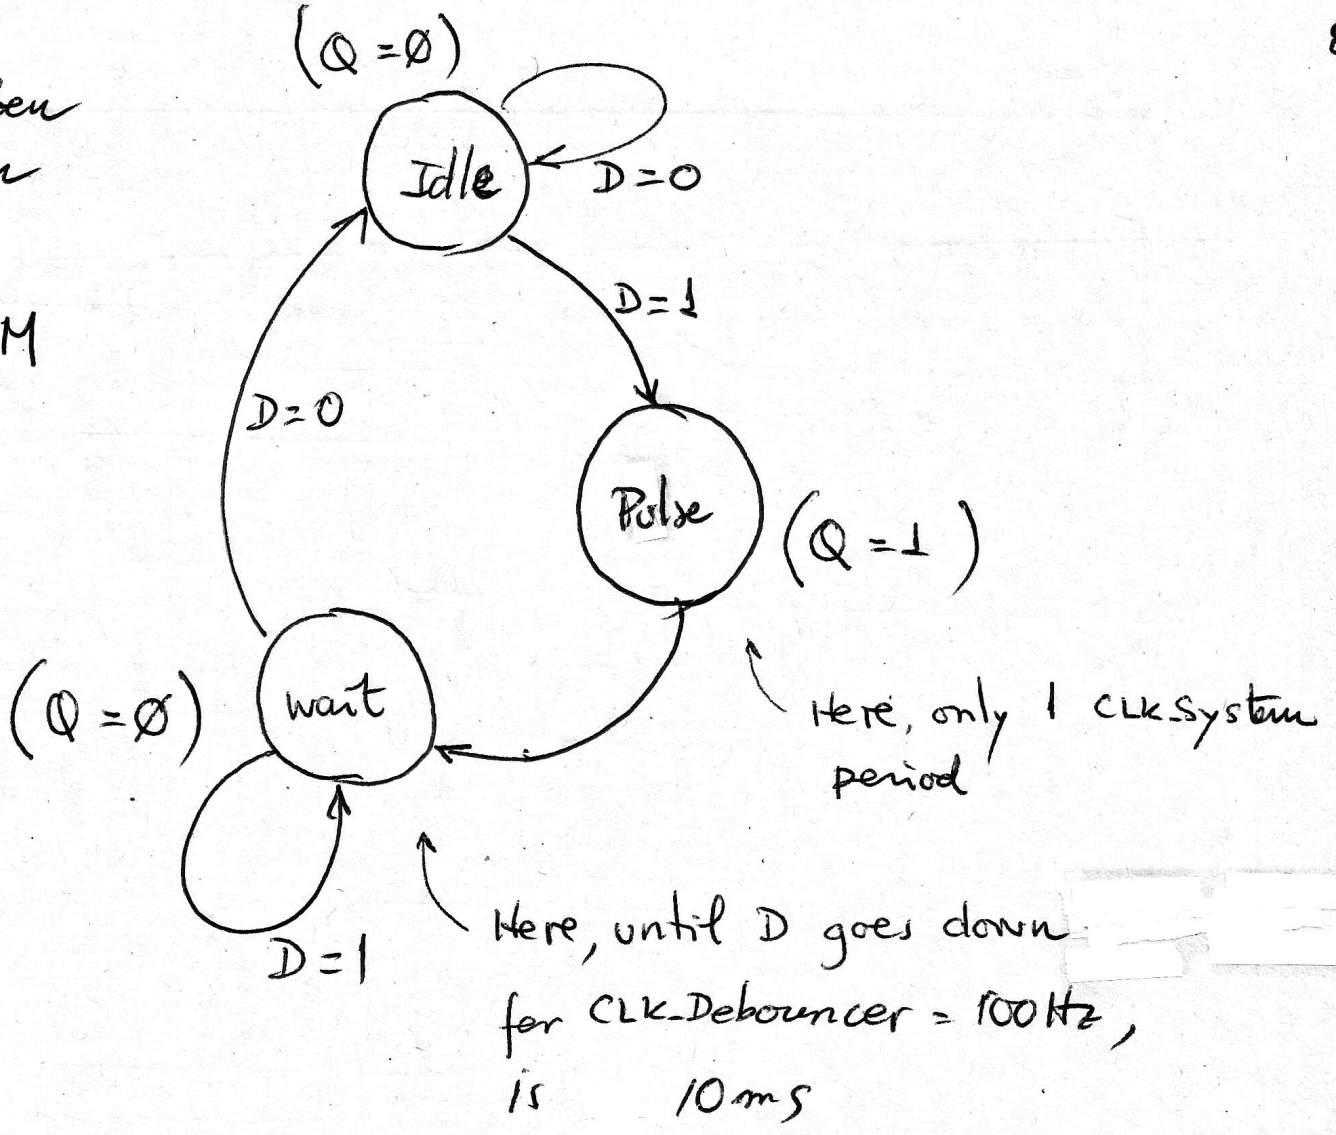 (Q = Ø)
Idle
D = 0
D = 1
M
D = 0
Pulse
(Q = 1)
wait
(Q = Ø)
Here, only 1 CLK_System
period
D = 1
Here, until D goes down
for CLK_Debouncer = 100 Hz,
is 10 ms